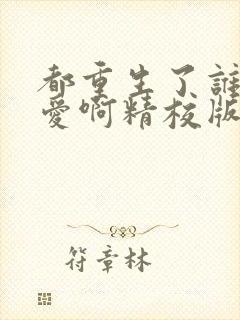 都重生了誰
愛啊精校版
符章林